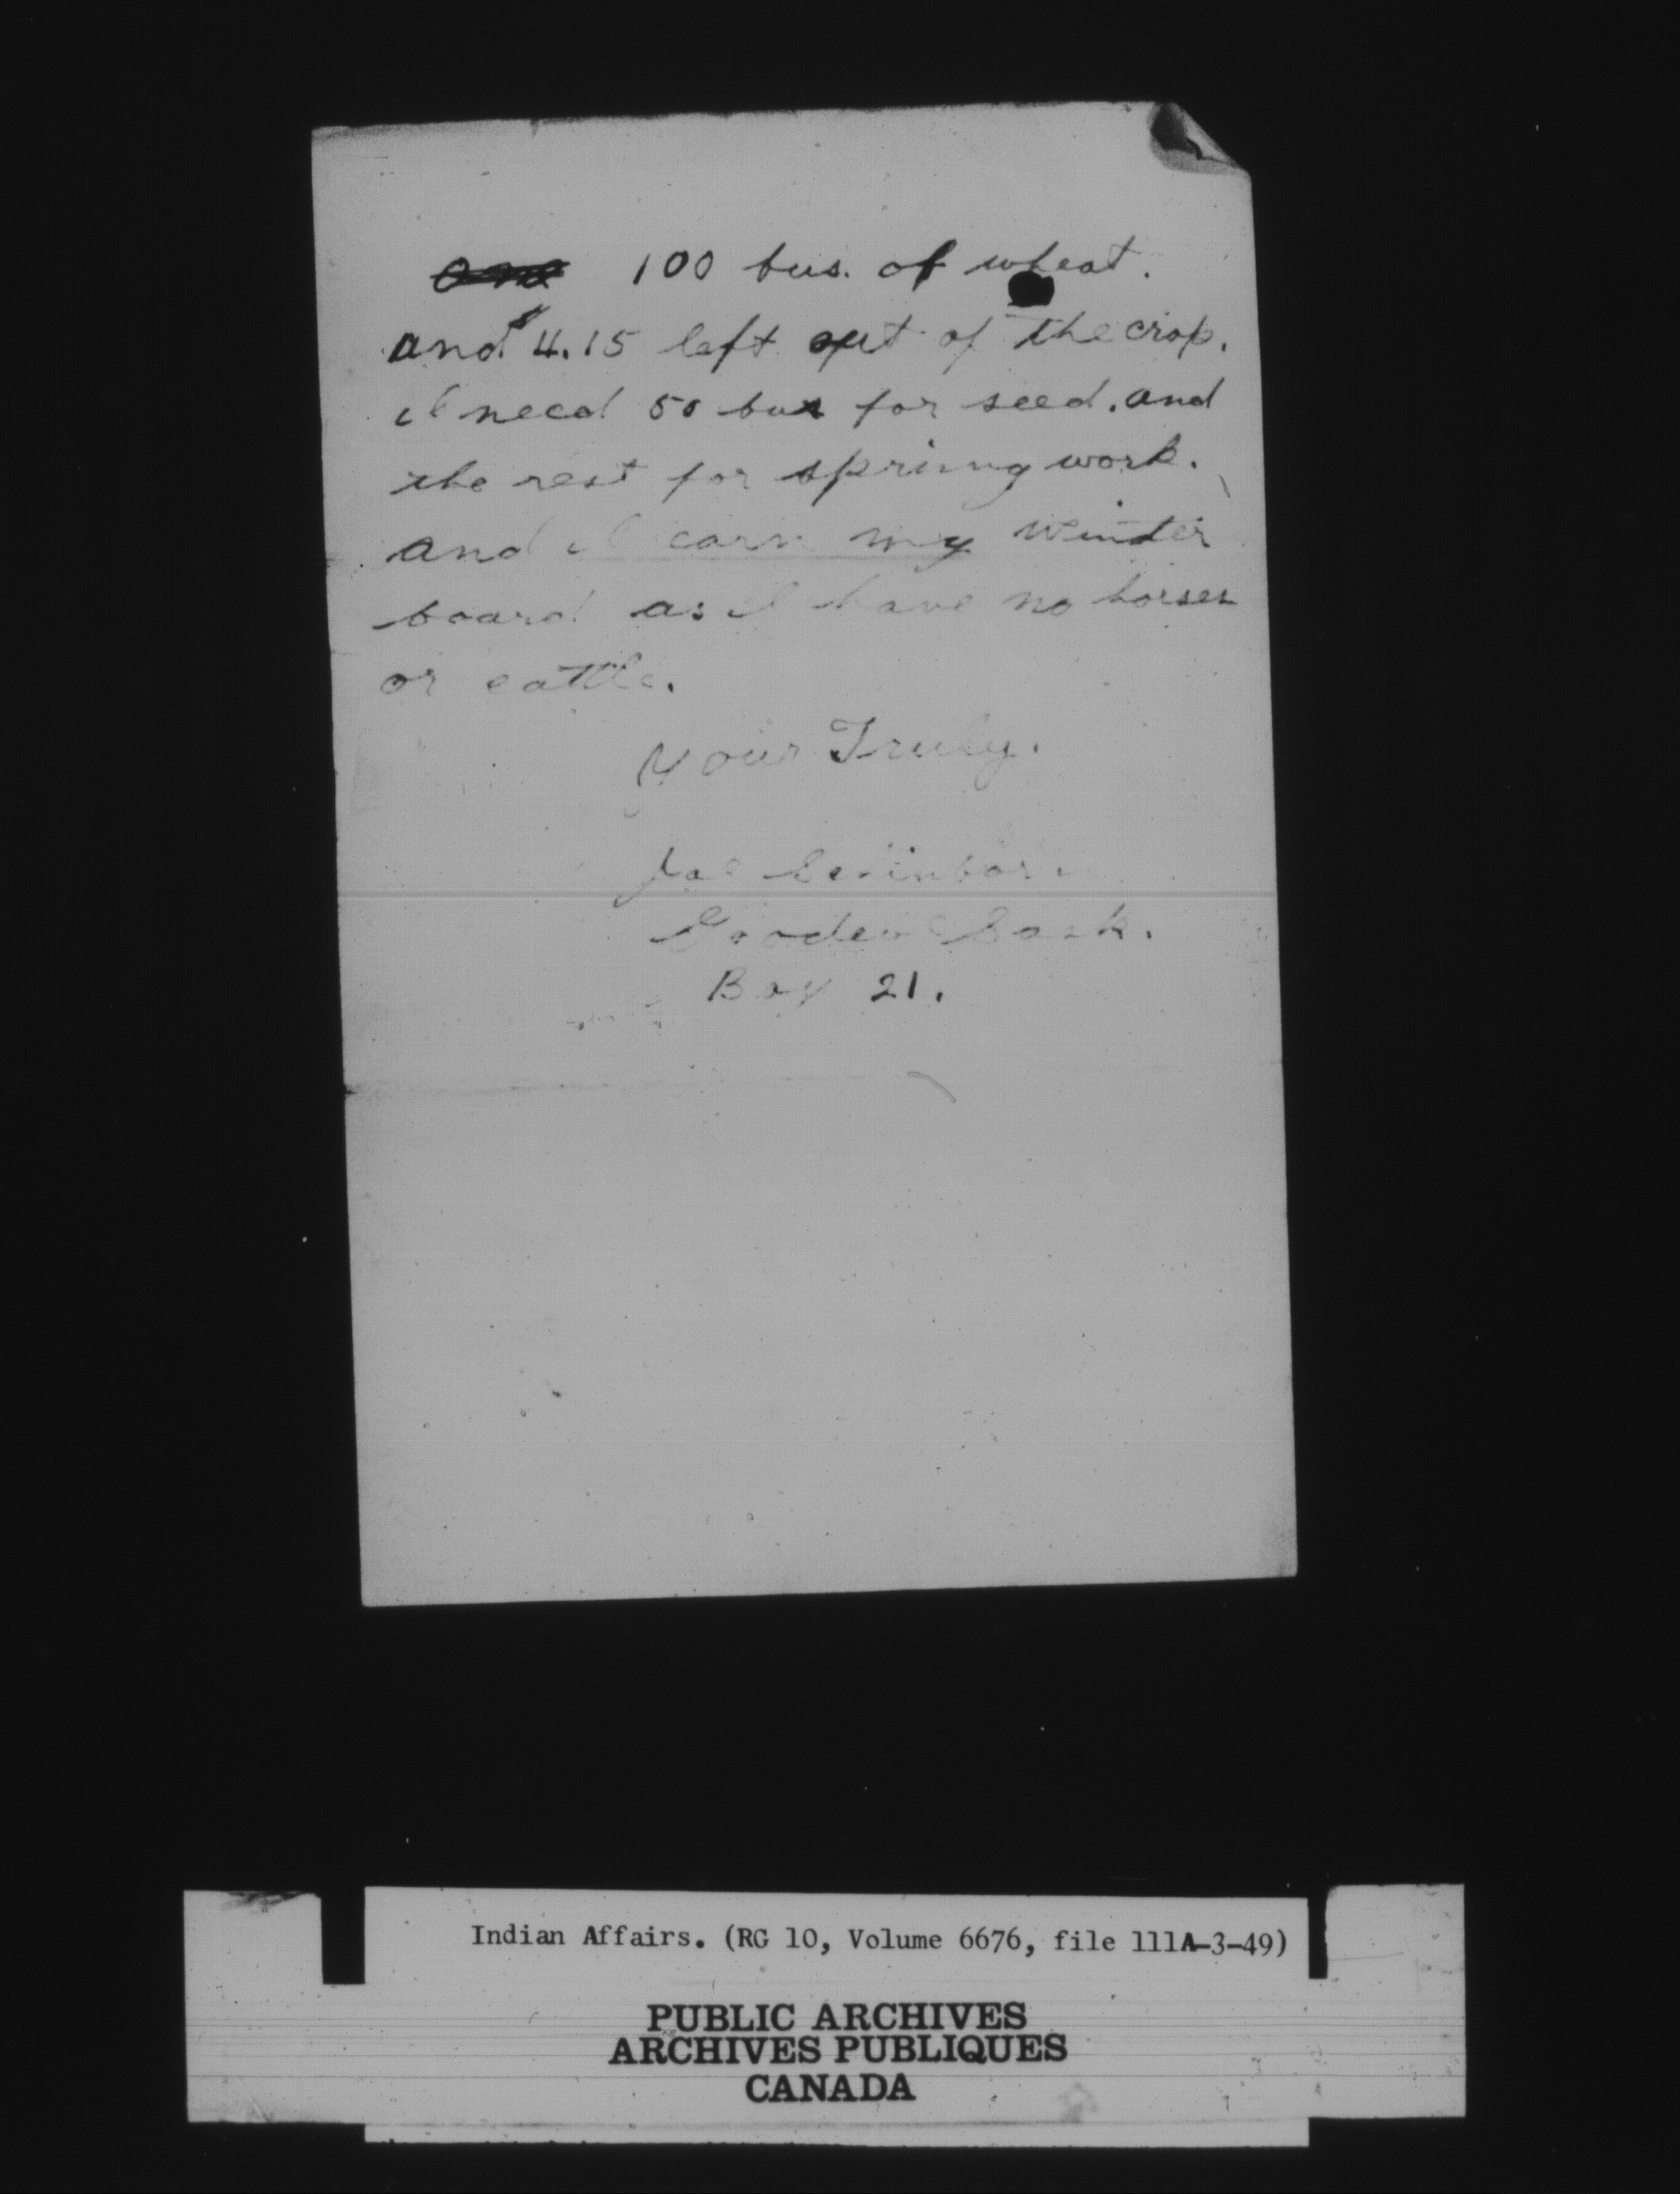 100 bus. of wheat.
and $4.15 left out of the crop.
I need 50 bus for seed. and
the rest for spring work.
and I earn my winter
board as I have no horses
or cattle.
Your Truly.
Joe
Goodeve Sask.
Box 21.
Indian Affairs. (RG 10, Volume 6676, file 111A-3-49)
PUBLIC ARCHIVES
ARCHIVES PUBLIQUES
CANADA